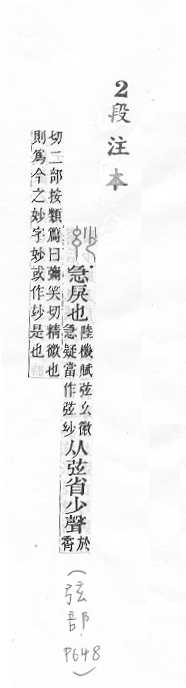 2段注本
玅急戾也
陸機賦弦幺徽
急疑當作弦玅
从弦省少聲
於
霄
切二部按類篇曰彌笑切精微也
則爲今之妙字妙或作玅是也
(弦部 P648)